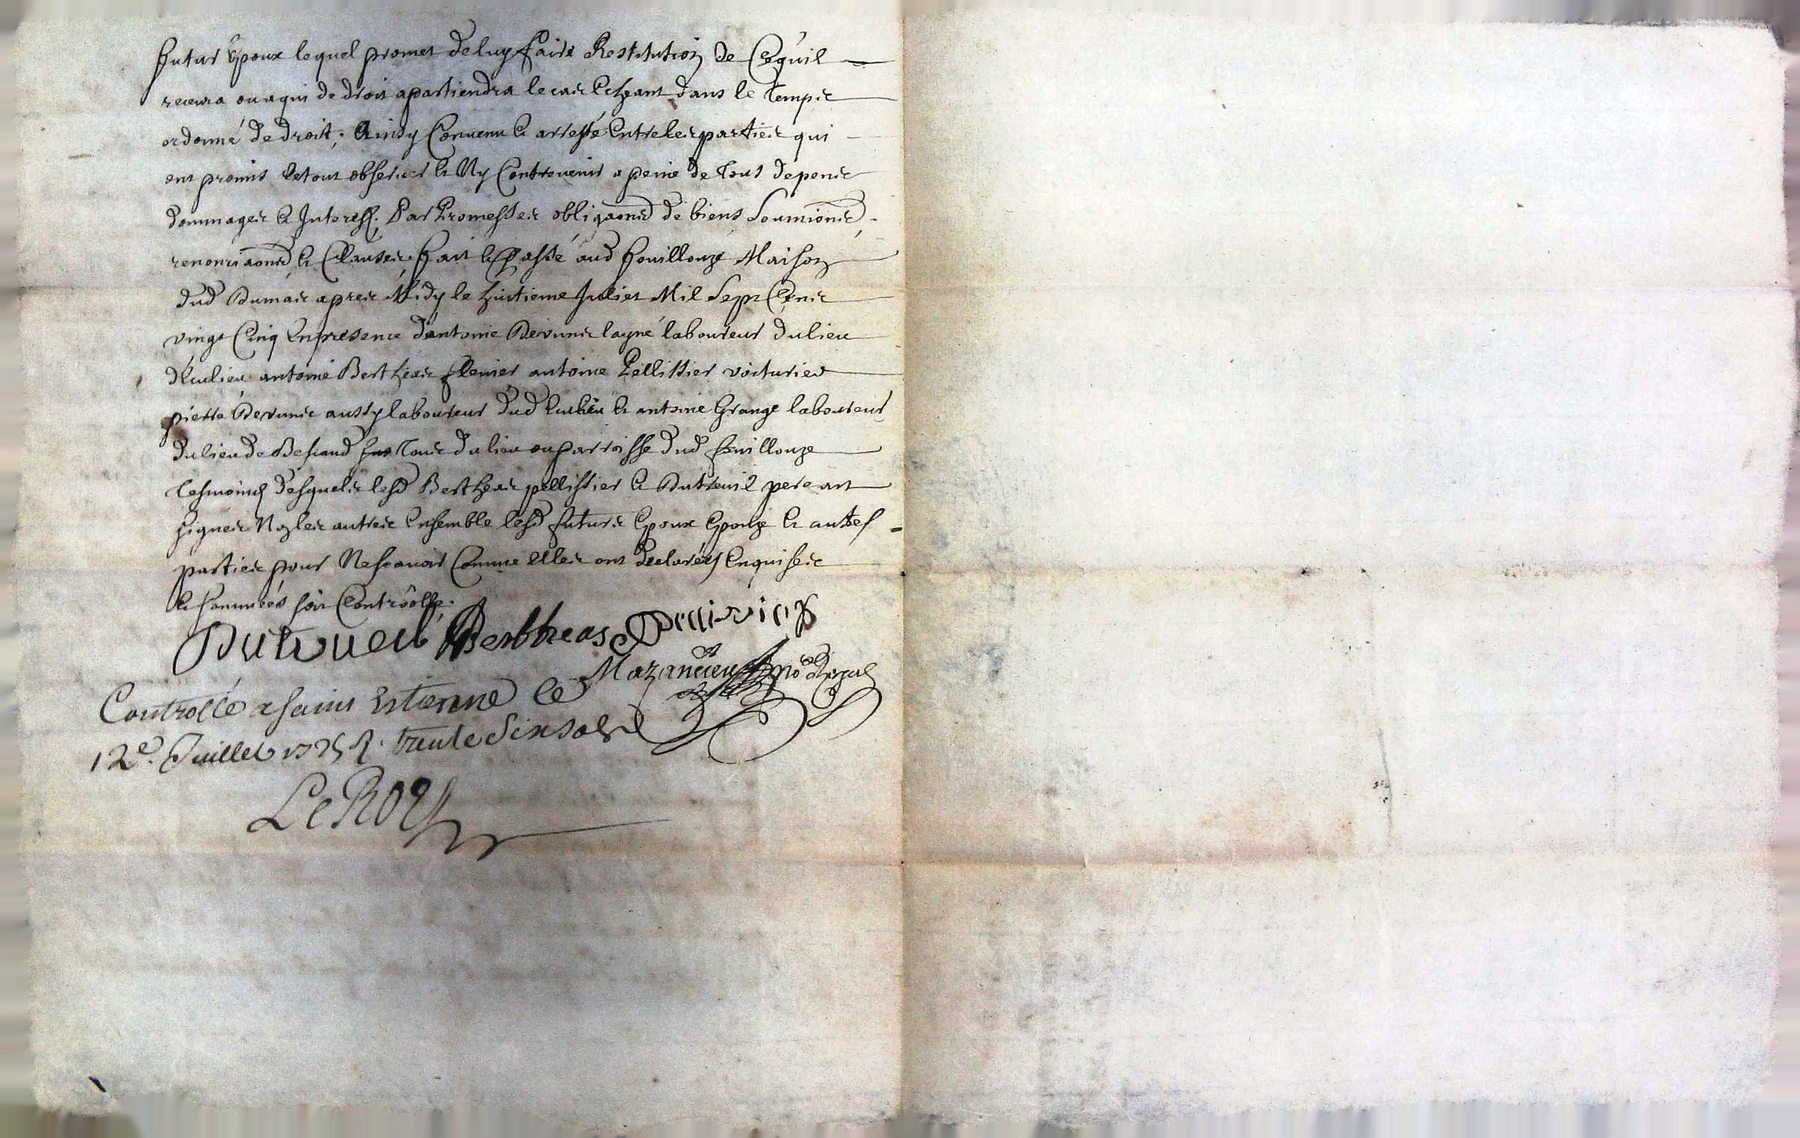 futur Epoux lequel promet de luy faire Restitution de Ce quil
recevra ou a qui de droit apartiendra le cas Echeant dans le temps
ordonné de droit, Ainsy Convenu & aresté Entre les parties qui
ont promis le tout observer & Ny Contrevenir a peine de tous depens
dommages & Interest, Par Promesses obligaons de biens Soumions
renonciaons & Clauses fait & Passé aud fouillouze Maison
dud Dumas apres Midy le huitieme Juliet Mil Sept Cens
vingt Cinq En presence dantoine layné laboureur du lieu
antoine Bertheas antoine Pellissier voiturier
pierre aussy laboureur dud & antoine Grange laboureur
du lieu de tous du lieu ou parroisse dud fouillouze
tesmoins desquels lesd Bertheas pellissier & Dutreuil pere ont
signés No les autres Ensemble lesd futurs Epoux Epouze & autres
parties pour Ne scavoir Comme elles ont declarées Enquises
& sommées soit Controollé.
Dutrueil Bertheas
Mazancieu No Royal
Controllé a saint Estienne le
12e. Juillet 1725 R. trente six sols
LeRoy